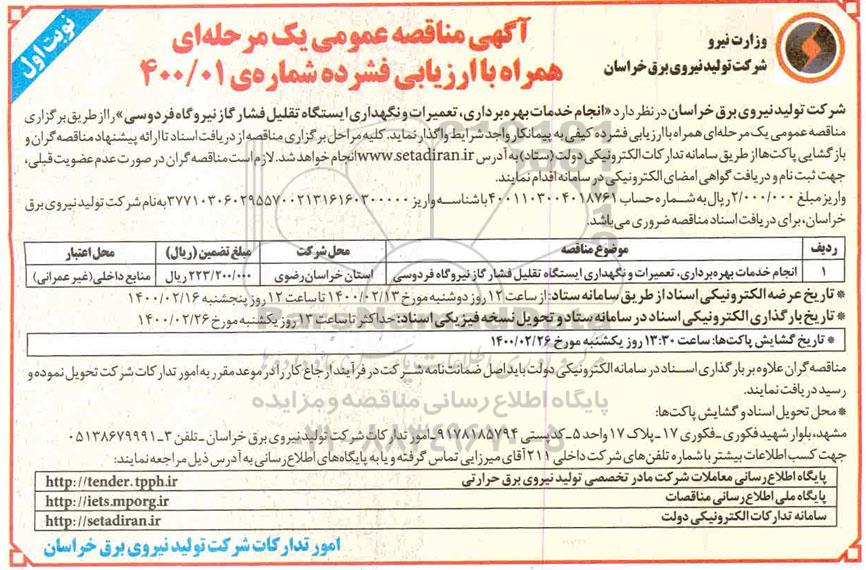 نوبت اول
وزارت نیرو
شرکت تولید نیروی برق خراسان
آگهی مناقصه عمومی یک مرحله‌ای
همراه با ارزیابی فشرده شماره‌ی ۴۰۰/۰۱
شرکت تولید نیروی برق خراسان در نظر دارد «انجام خدمات بهره‌برداری، تعمیرات و نگهداری ایستگاه تقلیل فشار گاز نیروگاه فردوسی» را از طریق برگزاری
مناقصه عمومی یک مرحله‌ای همراه با ارزیابی فشرده کیفی به پیمانکار واجد شرایط واگذار نماید. کلیه مراحل برگزاری مناقصه از دریافت اسناد تا ارائه پیشنهاد مناقصه‌گران و
بازگشایی پاکت‌ها از طریق سامانه تدارکات الکترونیکی دولت (ستاد) به آدرس www.setadiran.ir انجام خواهد شد. لازم است مناقصه‌گران در صورت عدم عضویت قبلی،
جهت ثبت نام و دریافت گواهی امضای الکترونیکی در سامانه اقدام نمایند.
واریز مبلغ ۲/۰۰۰/۰۰۰ ریال به شماره حساب ۴۰۰۱۱۰۳۰۰۴۰۱۸۷۶۱ با شناسه واریز ۳۷۷۱۰۳۰۶۰۲۹۵۵۷۰۰۲۱۳۱۶۱۶۰۳۰۰۰۰۰ به نام شرکت تولید نیروی برق
خراسان، برای دریافت اسناد مناقصه ضروری می‌باشد.
ردیف موضوع مناقصه محل شرکت مبلغ تضمین (ریال) محل اعتبار
۱ انجام خدمات بهره‌برداری، تعمیرات و نگهداری ایستگاه تقلیل فشار گاز نیروگاه فردوسی استان خراسان رضوی ۲۲۳/۲۰۰/۰۰۰ ریال منابع داخلی (غیر عمرانی)
* تاریخ عرضه الکترونیکی اسناد از طریق سامانه ستاد: از ساعت ۱۲ روز دوشنبه مورخ ۱۴۰۰/۰۲/۱۳ تا ساعت ۱۲ روز پنجشنبه ۱۴۰۰/۰۲/۱۶
* تاریخ بارگذاری الکترونیکی اسناد در سامانه ستاد و تحویل نسخه فیزیکی اسناد: حداکثر تا ساعت ۱۳ روز یکشنبه مورخ ۱۴۰۰/۰۲/۲۶
* تاریخ گشایش پاکت‌ها: ساعت ۱۳:۳۰ روز یکشنبه مورخ ۱۴۰۰/۰۲/۲۶
مناقصه گران علاوه بر بارگذاری اسناد در سامانه الکترونیکی دولت باید اصل ضمانت‌نامه شرکت در فرآیند ارجاع کار را در موعد مقرر به امور تدارکات شرکت تحویل نموده و
رسید دریافت نمایند.
پایگاه اطلاع رسانی مناقصه و مزایده
* محل تحویل اسناد و گشایش پاکت‌ها:
مشهد، بلوار شهید فکوری - فکوری ۱۷ - پلاک ۱۷ واحد ۵ - کدپستی ۹۱۷۸۱۸۵۷۹۴ - امور تدارکات شرکت تولید نیروی برق خراسان - تلفن ۳ - ۰۵۱۳۸۶۷۹۹۹۱
جهت کسب اطلاعات بیشتر با شماره تلفن‌های شرکت داخلی ۲۱۱ آقای میرزایی تماس گرفته و یا به پایگاه‌های اطلاع رسانی به آدرس ذیل مراجعه نمایند:
پایگاه اطلاع رسانی معاملات شرکت مادر تخصصی تولید نیروی برق حرارتی http://tender.tpph.ir
پایگاه ملی اطلاع رسانی مناقصات http://iets.mporg.ir
سامانه تدارکات الکترونیکی دولت http://setadiran.ir
امور تدارکات شرکت تولید نیروی برق خراسان